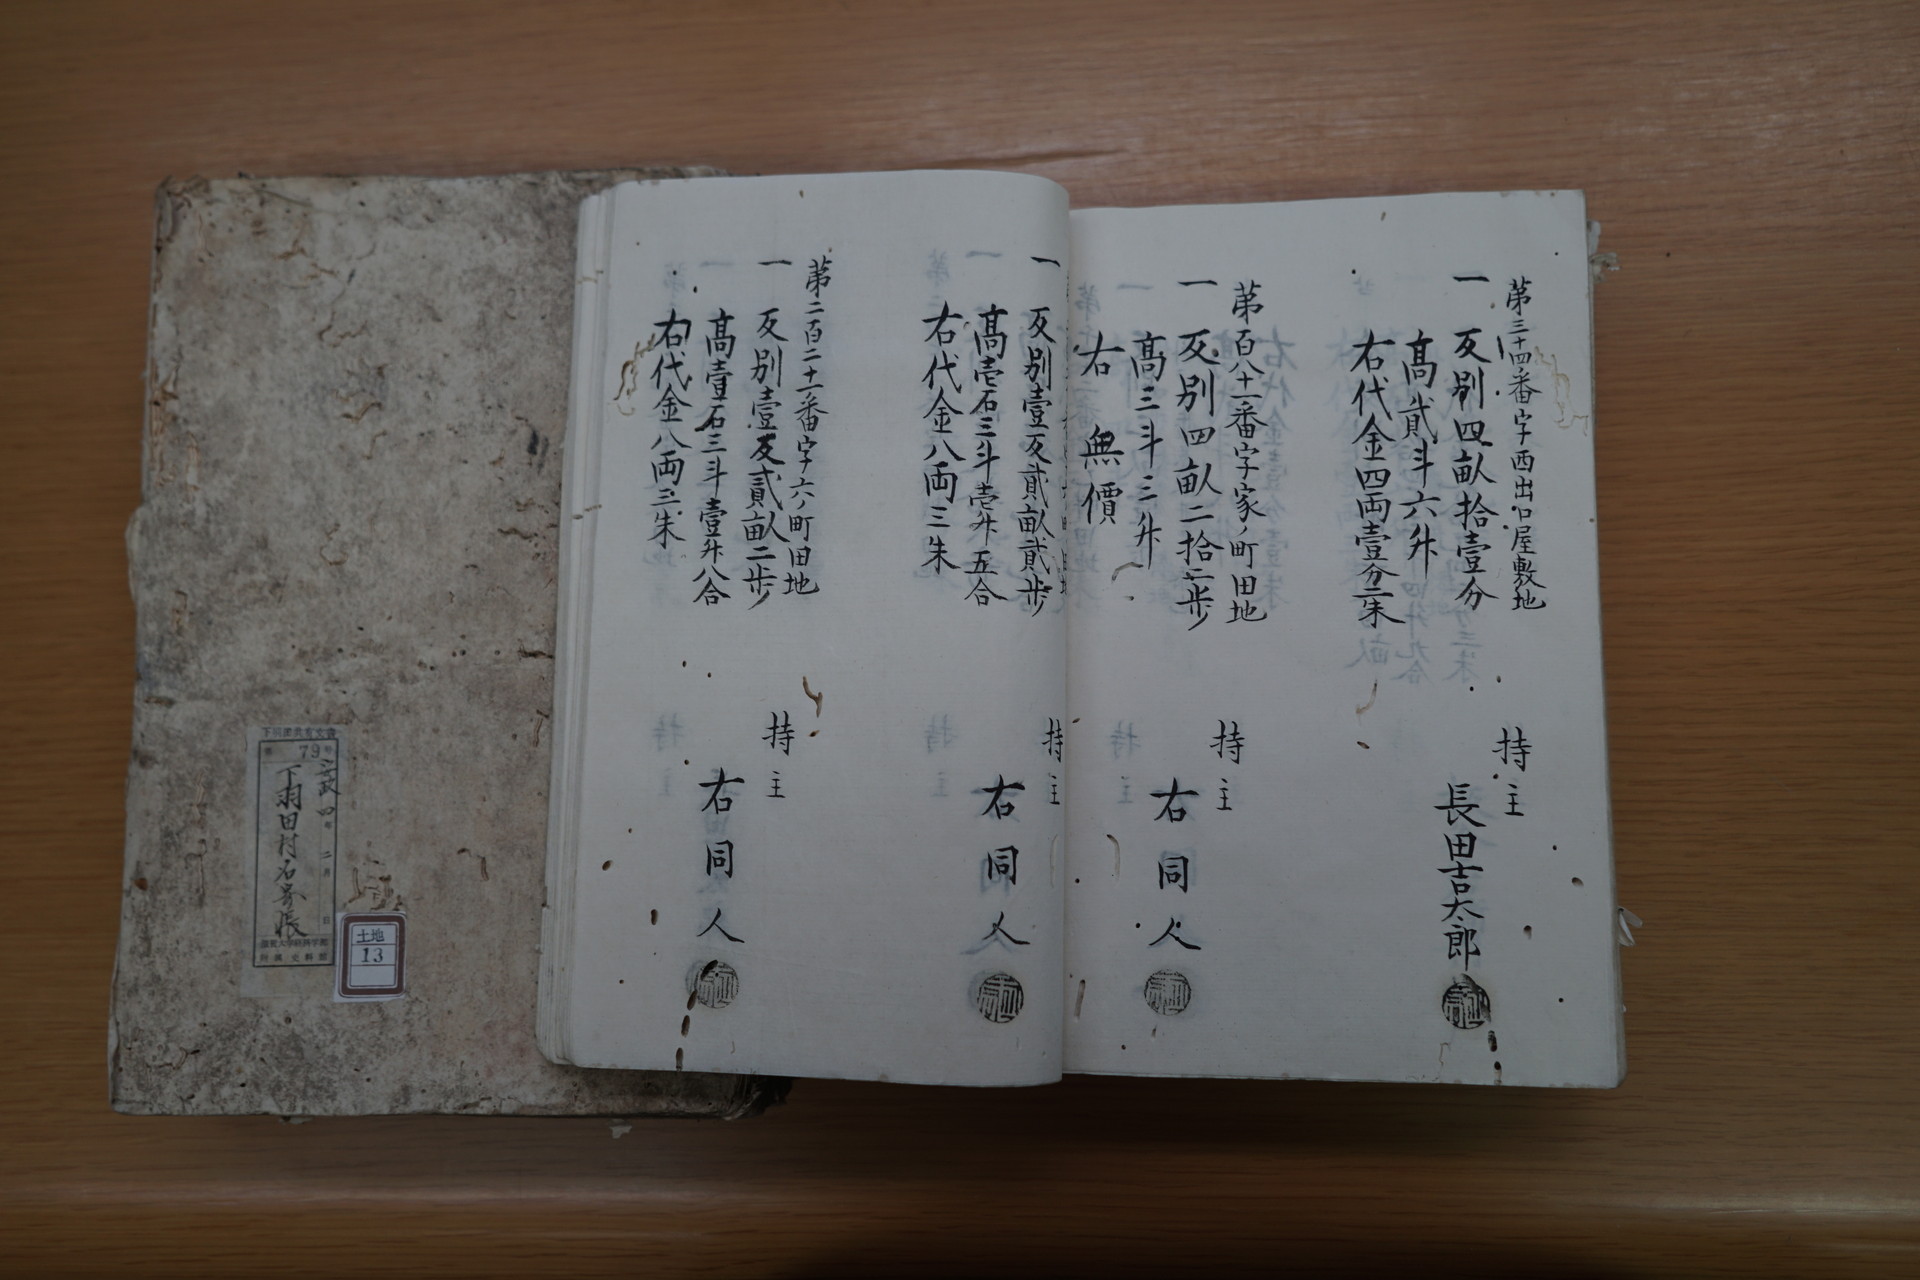 第三十四番字西出口屋敷地
一 反別四畝拾壹分
高貳斗六升
右代金四両壹分二朱
持主
長田吉太郎
第百八十一番字家ノ町田地
一 反別四畝二拾二歩
高三斗三升
右 無價
持主
右同人
一 反別壹反貳畝貳歩
高壱石三斗壱升五合
右代金八両三朱
持主
右同人
第二百二十一番字六ノ町田地
一 反別壹反貳畝二歩
高壹石三斗壹升八合
右代金八両三朱
持主
右同人
79号
安政四年二月 日
下羽田村名寄帳
土地
13